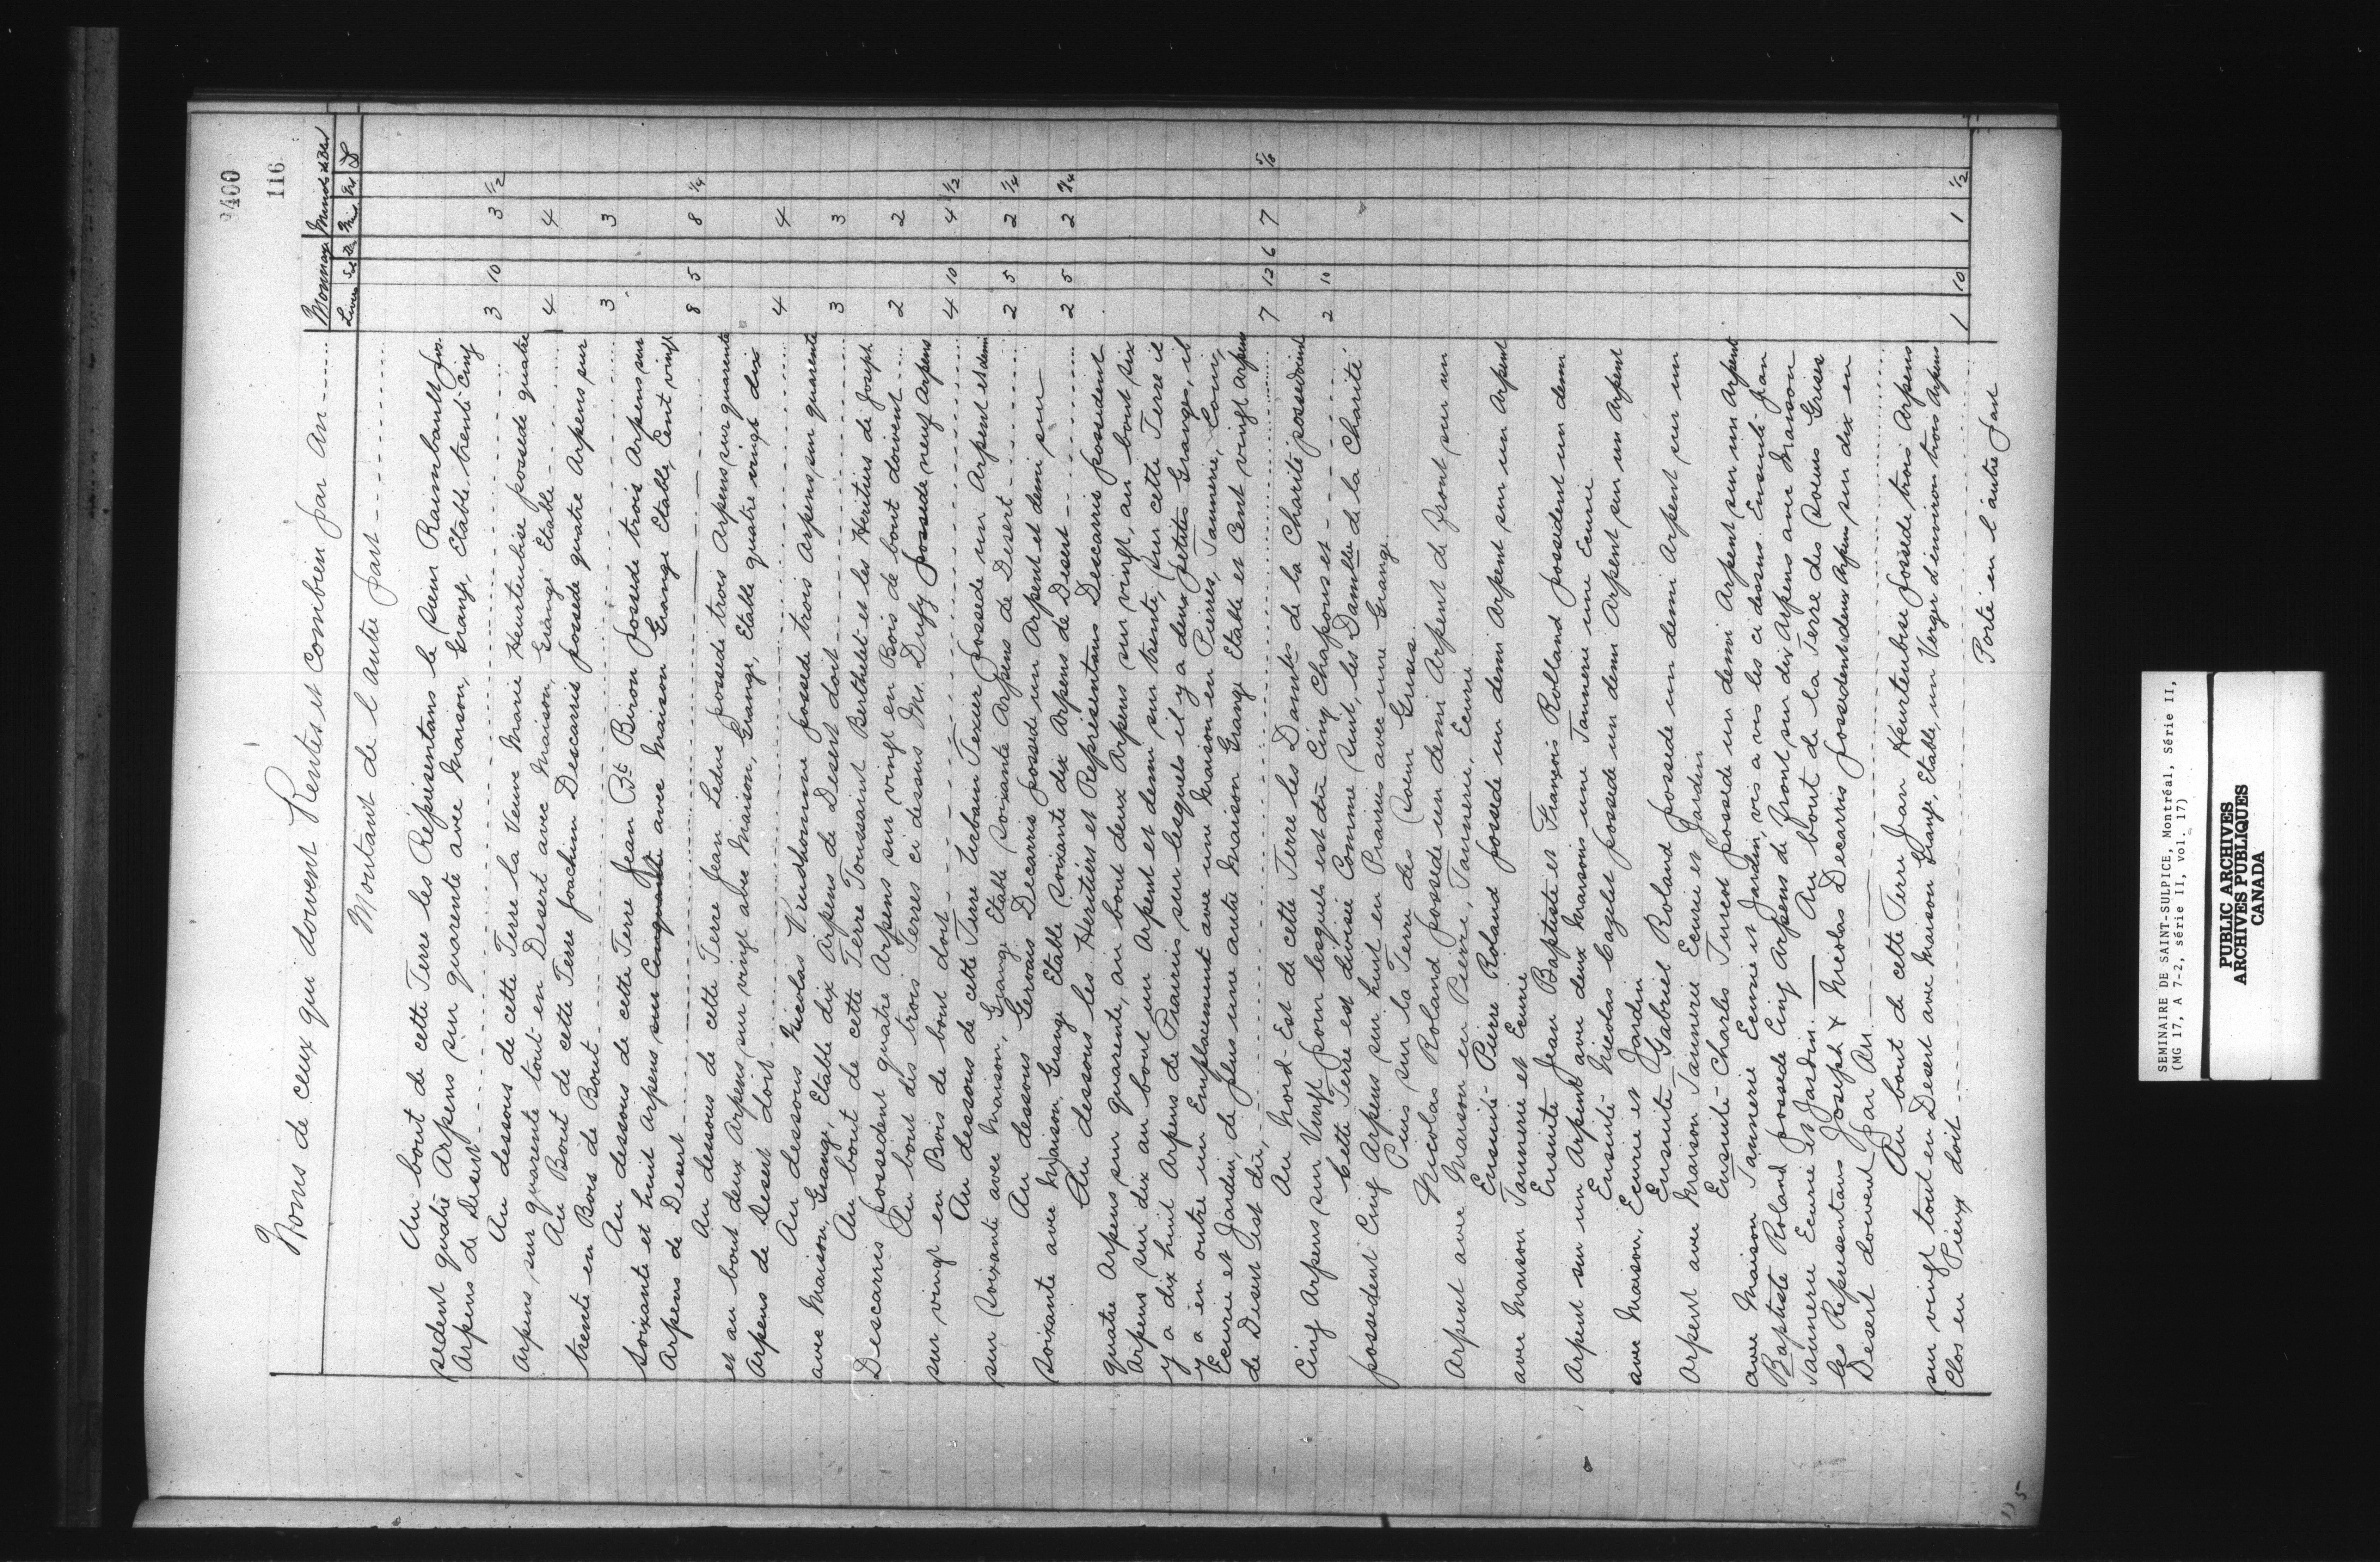 9400
116
Noms de ceux qui doivent Rentes et combien par an
Monnaye
Livres
Montant de l'autre part
Au bout de cette Terre les Représentans le Sieur Raimbault pos-
sedent quatre Arpens sur quarente avec Maison, Grange, Etable trente Cinq
Arpens de Desert 3 10 3 1/2
Au dessous de cette Terre la Veuve Marie Heurteubise possede quatre
Arpens sur quarente tout en Desert avec Maison, Grange Etable 4 4
Au Bout de cette Terre Joachim Descarris possede quatre Arpens sur
trente en Bois de Bout 3 3
Au dessous de cette Terre Jean Bte Biron possede trois Arpens sur
Soixante et huit Arpens sur Cinquante avec Maison Grange Etable, Cent vingt
Arpens de Desert 8 5 8 1/4
Au dessous de cette Terre Jean Leduc possede trois Arpens sur quarente
et au bout deux Arpens sur vingt avec Maison, Grange, Etable quatre vingt dix
Arpens de Desert Doit 4 4
Au dessous Nicolas Prudhomme possede trois Arpens sur quarente
avec Maison, Grange, Etable dix Arpens de Desert doit 3 3
Au bout de cette Terre Toussaint Berthelet et les Heritiers de Joseph
Descarris possedent quatre Arpens sur vingt en Bois de bout doivent 2 2
Au bout des trois Terres ci dessus Mr. Dufy possede neuf Arpens
sur vingt en Bois de bout doit 4 10 4 1/2
Au dessous de cette Terre Urbain Tessier possede un Arpent et demi
sur Soixante avec Maison, Grange Etable Soixante Arpens de Desert 2 5 2 1/4
Au dessous Gervais Decarris possede un Arpent et demi sur
Soixante avec Maison, Grange Etable Soixante dix Arpens de Desert 2 5 2 1/4
Au dessous les Heritiers et Représentans Descarris possedent
quatre Arpens sur quarente, au bout deux Arpens sur vingt, au bout six
Arpens sur dix au bout un Arpent et demi sur trente, sur cette Terre il
y a dix huit Arpens de Prairies sur lesquels il y a deux petites Granges, il
y a en outre un Emplacement avec une Maison en Pierres, Tannerie, Cour,
Ecurie et Jardin, de plus une autre Maison Grange Etable et Cent vingt Arpens
de Desert Est dû, 7 12 6 7 5/8
Au Nord-Est de cette Terre les Dames de la Charité possedoient
Cinq Arpens sur Vingt pour lesquels est dû Cinq Chapons et 2 10
Cette Terre est divisée Comme Suit, les Dames de la Charité
possedent Cinq Arpens sur huit en Prairies avec une Grange
Puis sur la Terre des Soeurs Grises
Nicolas Roland possede un demi Arpent de Front sur un
Arpent avec Maison en Pierre, Tannerie, Ecurie
Ensuite Pierre Roland possede un demi Arpent sur un Arpent
avec Maison Tannerie et Ecurie
Ensuite Jean Baptiste et François Rolland possedent un demi
Arpent sur un Arpent avec deux Maisons une Tannerie une Ecurie
Ensuite Nicolas Cazelet possede un demi Arpent sur un Arpent
avec Maison, Ecurie et Jardin
Ensuite Gabriel Roland possede un demi Arpent sur un
Arpent avec Maison Tannerie Ecurie et Jardin
Ensuite Charles Turcot possede un demi Arpent sur un Arpent
avec Maison Tannerie Ecurie et Jardin, vis a vis les ci dessus. Ensuite Jean
Baptiste Roland possede Cinq Arpens de Front sur dix Arpens avec Maison
Tannerie Ecurie et Jardin. Au bout de la Terre des Soeurs Grises
les Représentans Joseph & Nicolas Decarris possedent deux Arpens sur dix en
Desert doivent Par An
Au bout de cette Terre Jean Heurteubise possede trois Arpens
sur vingt tout en Desert avec Maison Grange, Etable, un Verger d'environ trois Arpens
Clos en Pieux doit 1 10 1 1/2
Porté en l'autre part
115
SEMINAIRE DE SAINT-SULPICE, Montréal, Série II,
(MG 17, A 7-2, série II, vol. 17)
PUBLIC ARCHIVES
ARCHIVES PUBLIQUES
CANADA